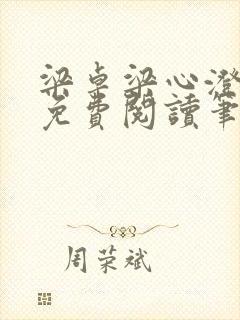 梁卓梁心澄
免費閱讀筆
周荣斌